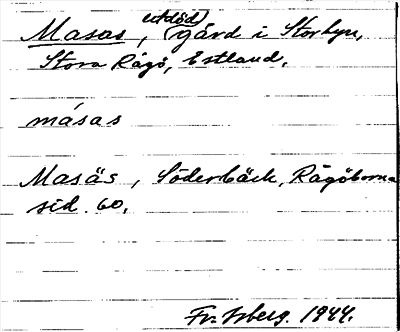 Masas, (utdöd) gård i Storbyn,
Stora Rågö, Estland.
másas
Masäs, Söderbäck, Rågöborna
sid. 60.
Fr. Isberg. 1944.